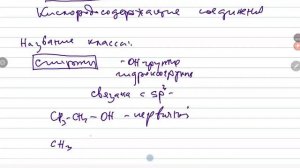 Кислородсодержащие соединения
Название класса:
спирты -OH-группа
гидроксогруппа
связана с sp³-
CH₃-CH₂-OH - первичный
CH₃